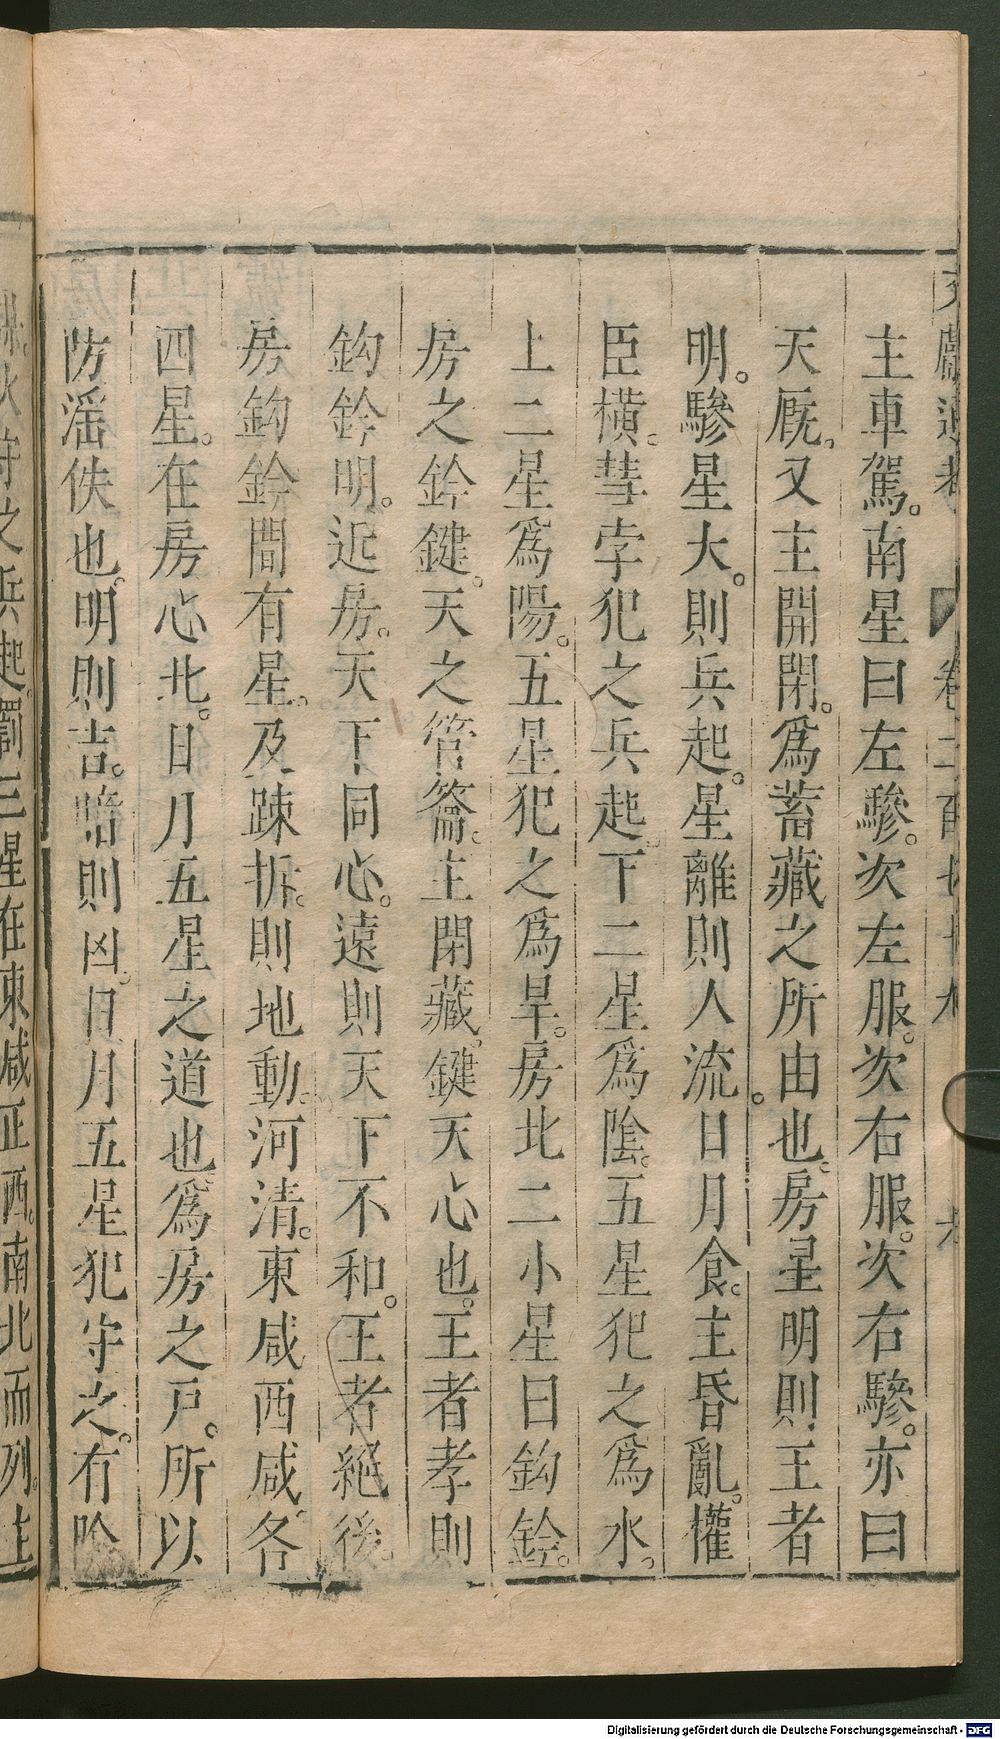 主車駕。南星曰左驂。次左服。次右服。次右驂。亦曰
天廐。又主開閉。爲蓄藏之所由也。房星明則王者
明。驂星大。則兵起。星離則人流。日月食。主昏亂。權
臣橫。彗孛犯之兵起。下二星爲陰。五星犯之爲水。
上二星爲陽。五星犯之爲旱。房北二小星曰鈎鈐。
房之鈐鍵。天之管籥。主閉藏。鍵天心也。王者孝則
鈎鈐明。近房。天下同心。遠則天下不和。王者絕後。
房鈎鈐間有星。及疎拆。則地動。河清。東咸西咸。各
四星。在房心北。日月五星之道也。爲房之戶。所以
防滛佚也。明則吉。暗則凶。日月五星犯守之。有陰
火守之兵起。罰三星在東咸正西。南北而列。主
Digitalisierung gefördert durch die Deutsche Forschungsgemeinschaft - DFG